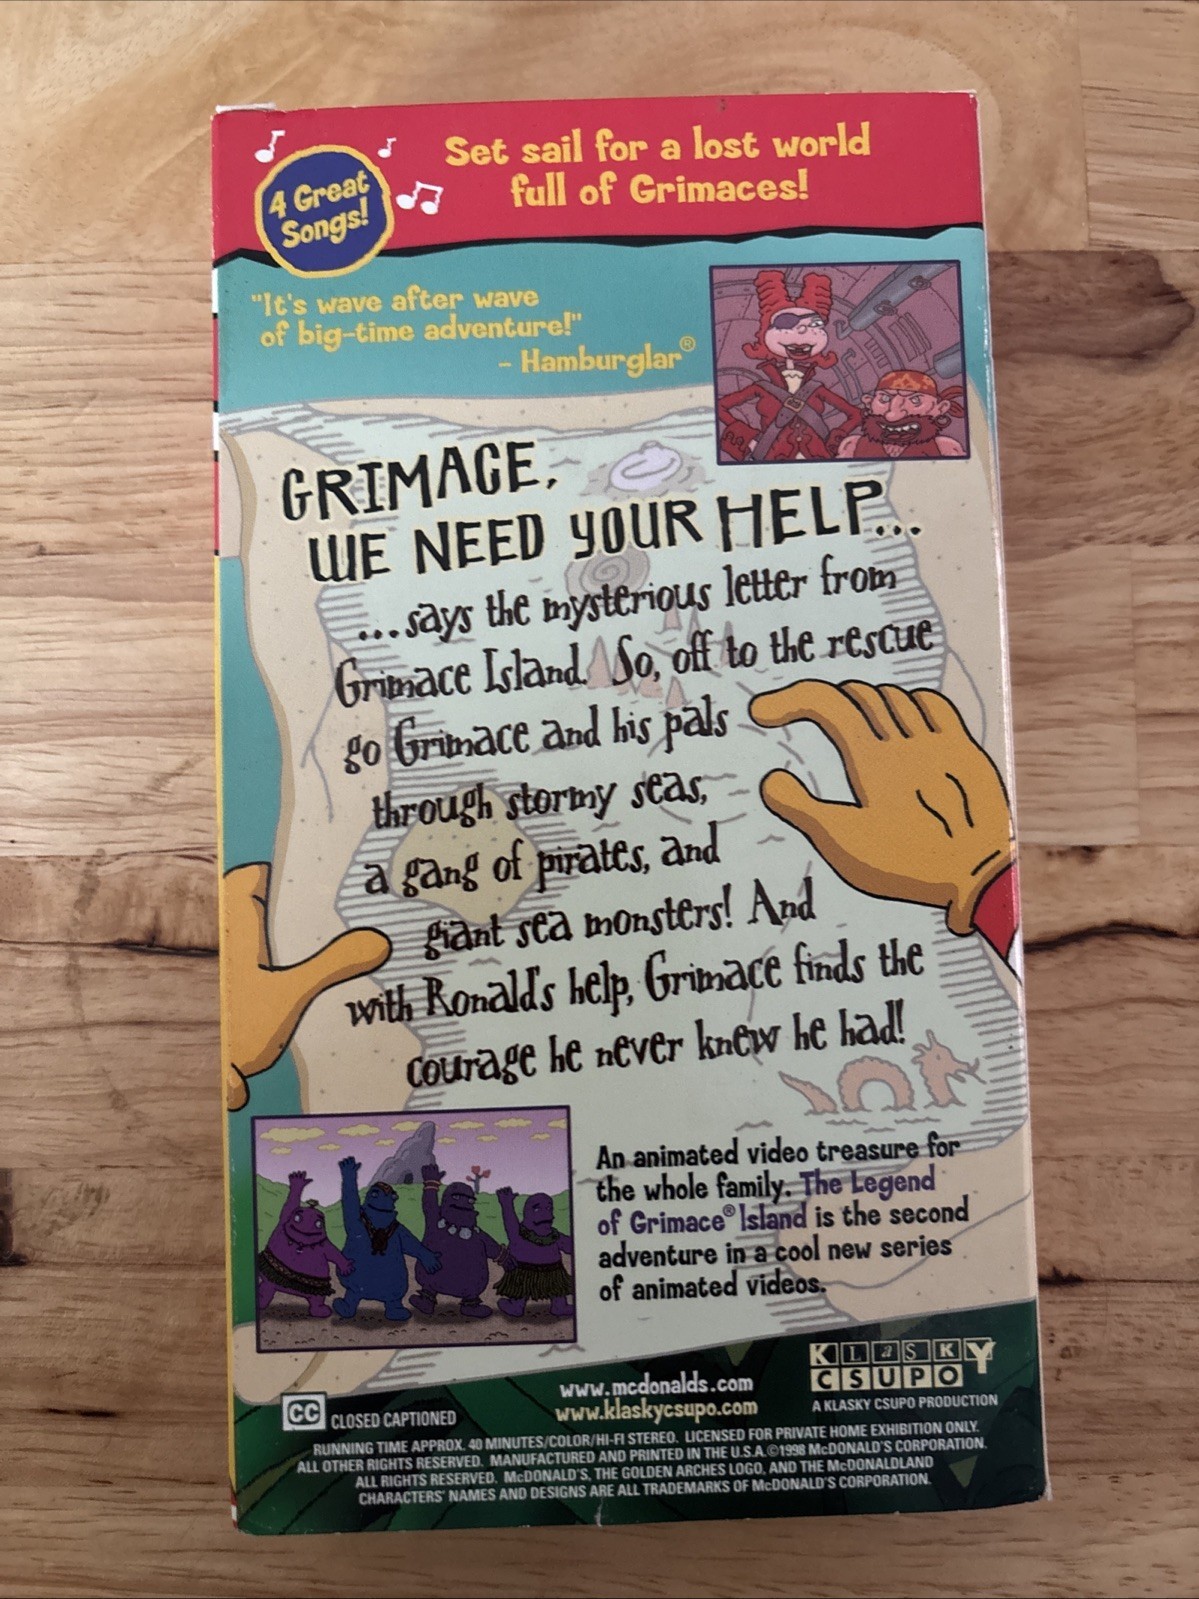 4 Great
Songs!
Set sail for a lost world
full of Grimaces!
"It's wave after wave
of big-time adventure!"
- Hamburglar®
GRIMACE,
WE NEED YOUR HELP...
...says the mysterious letter from
Grimace Island. So, off to the rescue
go Grimace and his pals
through stormy seas,
a gang of pirates, and
giant sea monsters! And
with Ronald's help, Grimace finds the
courage he never knew he had!
An animated video treasure for
the whole family. The Legend
of Grimace® Island is the second
adventure in a cool new series
of animated videos.
KLaSKY
CSUPO
A KLASKY CSUPO PRODUCTION
www.mcdonalds.com
www.klaskycsupo.com
CC CLOSED CAPTIONED
RUNNING TIME APPROX. 40 MINUTES/COLOR/HI-FI STEREO. LICENSED FOR PRIVATE HOME EXHIBITION ONLY.
ALL OTHER RIGHTS RESERVED. MANUFACTURED AND PRINTED IN THE U.S.A. ©1998 McDONALD'S CORPORATION.
ALL RIGHTS RESERVED. McDONALD'S, THE GOLDEN ARCHES LOGO, AND THE McDONALDLAND
CHARACTERS' NAMES AND DESIGNS ARE ALL TRADEMARKS OF McDONALD'S CORPORATION.